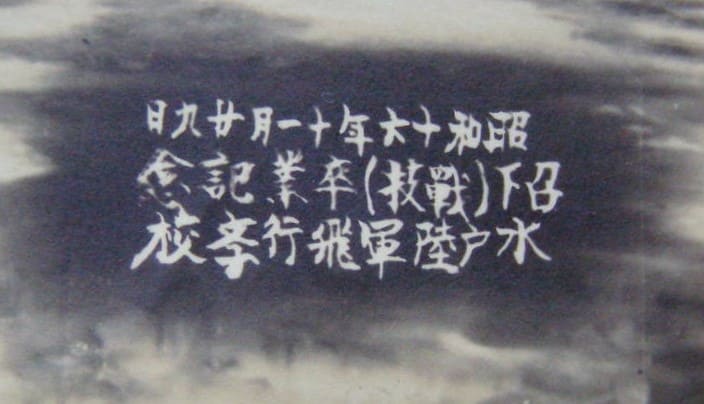 昭和十六年十一月廿九日
召下(戰技)卒業記念
水戸陸軍飛行学校